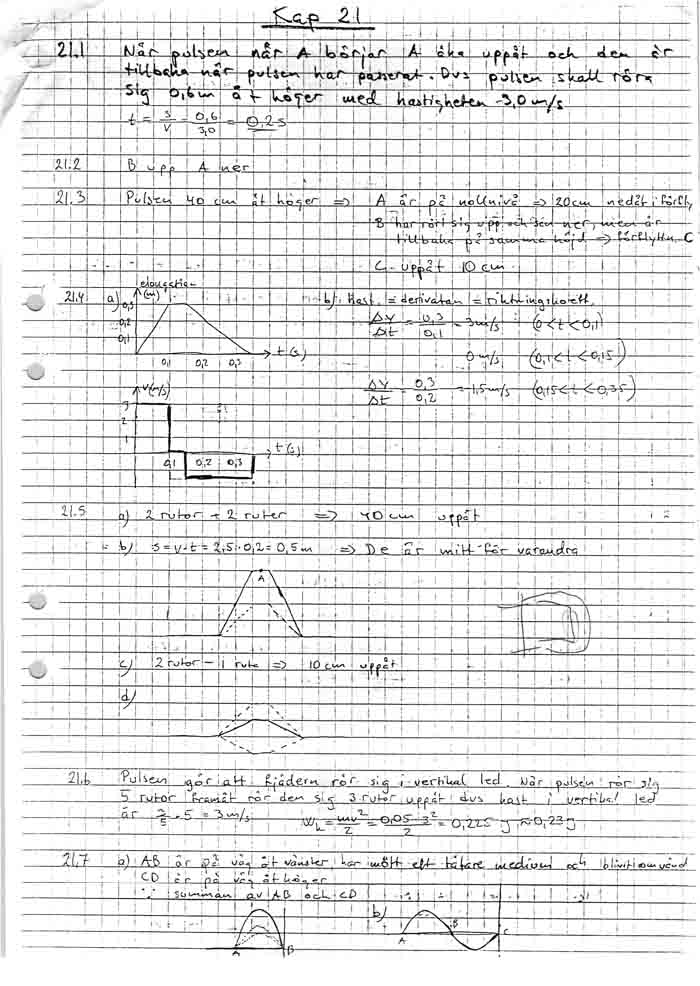 Kap 21
21.1 När pulsen når A börjar A åka uppåt och den är
tillbaka när pulsen har passerat. Dvs pulsen skall röra
sig 0,6m åt höger med hastigheten 3,0 m/s
t = s/v = 0,6/3,0 = 0,2 s
21.2 B upp A ner
21.3 Pulsen 40 cm åt höger => A är på nollnivå => 20cm nedåt i förfly
B har rört sig upp och sen ner, men är
tillbaka på samma höjd => förflyttn. 0
C uppåt 10 cm
21.4 a) elongation (m) b) Hast. = derivatan = riktningskoeff.
0,3
0,2
0,1
0,1 0,2 0,3 t (s)
ΔY/Δt = 0,3/0,1 = 3 m/s (0<t<0,1)
0 m/s (0,1<t<0,15)
ΔY/Δt = 0,3/0,2 = -1,5 m/s (0,15<t<0,35)
v(m/s)
3
2
1
0,1 0,2 0,3 t (s)
21.5 a) 2 rutor + 2 rutor => 40 cm uppåt
b) s = v·t = 2,5·0,2 = 0,5 m => De är mitt för varandra
A
c) 2 rutor - 1 ruta => 10 cm uppåt
d)
21.6 Pulsen gör att fjädern rör sig i vertikal led. När pulsen rör sig
5 rutor framåt rör den sig 3 rutor uppåt dvs hast i vertikal led
är 3/5 · 5 = 3 m/s Wk = mv²/2 = 0,05·3²/2 = 0,225 J ≈ 0,23 J
21.7 a) AB är på väg åt vänster har mött ett tätare medium och blivit omvänd
CD är på väg åt höger
∵ summan av AB och CD
A B
b) A B C